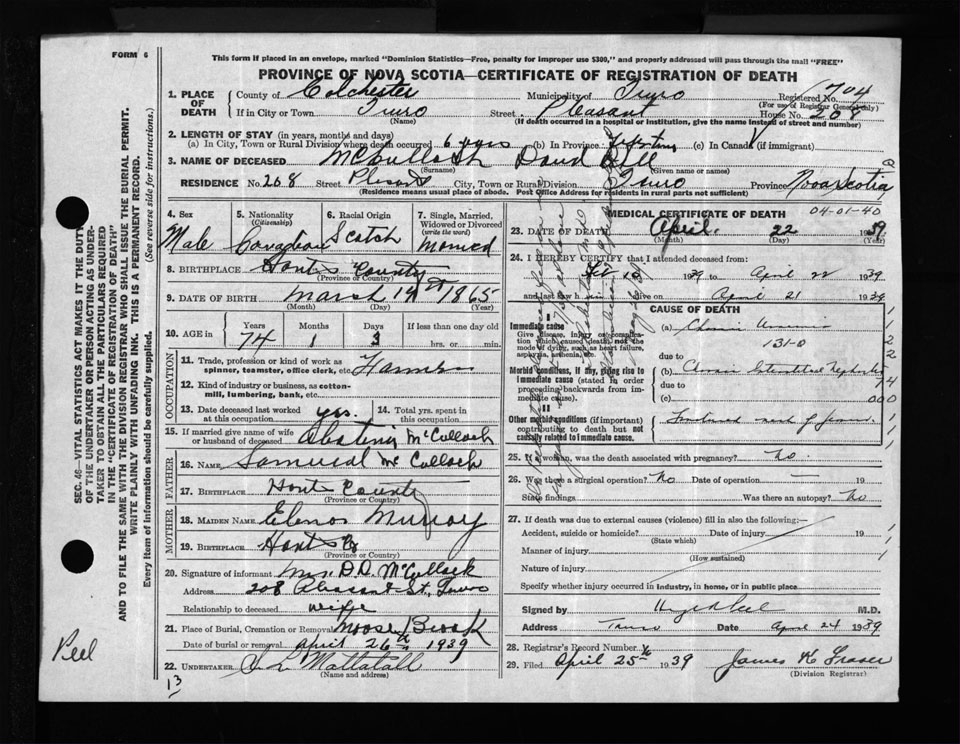 FORM 6
This form if placed in an envelope, marked "Dominion Statistics—Free, penalty for improper use $300," and properly addressed will pass through the mail "FREE"
PROVINCE OF NOVA SCOTIA—CERTIFICATE OF REGISTRATION OF DEATH
1. PLACE OF DEATH
County of Colchester Municipality of Truro Registered No. 1704
(For use of Registrar General only)
If in City or Town Truro Street Pleasant House No. 208
(Name) (If death occurred in a hospital or institution, give the name instead of street and number)
2. LENGTH OF STAY (in years, months and days)
(a) In City, Town or Rural Division where death occurred 6 years (b) In Province Lifetime (c) In Canada (if immigrant)
3. NAME OF DECEASED McCulloch David Dill
(Surname) (Given name or names)
RESIDENCE No. 208 Street Pleasant City, Town or Rural Division Truro Province Nova Scotia
(Residence means usual place of abode. Post Office Address for residents in rural parts not sufficient)
4. Sex Male
5. Nationality (Citizenship) Canadian
6. Racial Origin Scotch
7. Single, Married, Widowed or Divorced (write the word) Married
8. BIRTHPLACE Hants County
(Province or Country)
9. DATE OF BIRTH March 19th 1865
(Month) (Day) (Year)
10. AGE in Years Months Days If less than one day old
74 1 3 hrs. or min.
OCCUPATION
11. Trade, profession or kind of work as spinner, teamster, office clerk, etc. Farmer
12. Kind of industry or business, as cotton-mill, lumbering, bank, etc.
13. Date deceased last worked at this occupation yes.
14. Total yrs. spent in this occupation
15. If married give name of wife or husband of deceased McCulloch
FATHER
16. Name Samuel McCulloch
17. Birthplace Hants County
(Province or Country)
MOTHER
18. Maiden Name Elenor Murray
19. Birthplace Hants Co
(Province or Country)
20. Signature of informant Mrs. D.D. McCulloch
Address 208 Pleasant St., Truro
Relationship to deceased wife
21. Place of Burial, Cremation or Removal Moose Brook
Date of burial or removal April 26th 1939
22. UNDERTAKER Mattatall
(Name and address)
MEDICAL CERTIFICATE OF DEATH 04-01-40
23. DATE OF DEATH April 22 1939
(Month) (Day) (Year)
24. I HEREBY CERTIFY that I attended deceased from:
Feb 10 1939 to April 22 1939
and last saw him alive on April 21 1939
CAUSE OF DEATH
I
Immediate cause
Give disease, injury or complication which caused death, not the mode of dying, such as heart failure, asphyxia, asthenia, etc.
(a) Chronic Uraemia
131-0
due to
Morbid conditions, if any, giving rise to immediate cause (stated in order proceeding backwards from immediate cause).
(b) Chronic Interstitial Nephritis
due to 74
(c) 000
II
Other morbid conditions (if important) contributing to death but not causally related to immediate cause.
25. If a woman, was the death associated with pregnancy? No.
26. Was there a surgical operation? No Date of operation 19
State findings Was there an autopsy? No
27. If death was due to external causes (violence) fill in also the following:—
Accident, suicide or homicide? Date of injury 19
(State which)
Manner of injury
(How sustained)
Nature of injury
Specify whether injury occurred in industry, in home, or in public place
Signed by M.D.
Address Truro Date April 24 1939
28. Registrar's Record Number
29. Filed April 25th 1939 James K Fraser
(Division Registrar)
SEC. 46—VITAL STATISTICS ACT MAKES IT THE DUTY OF THE UNDERTAKER OR PERSON ACTING AS UNDERTAKER TO OBTAIN ALL THE PARTICULARS REQUIRED IN THE "CERTIFICATE OF REGISTRATION OF DEATH" AND TO FILE THE SAME WITH THE DIVISION REGISTRAR WHO SHALL ISSUE THE BURIAL PERMIT.
WRITE PLAINLY WITH UNFADING INK. THIS IS A PERMANENT RECORD.
Every item of information should be carefully supplied. (See reverse side for instructions.)
Peel
13